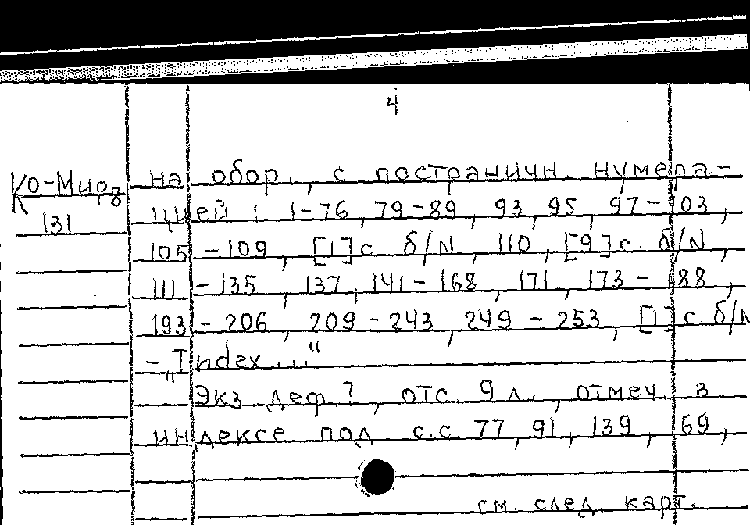 4
Ко-Мирз
131
на обор., с постраничн. нумера-
цией: 1-76, 79-89, 93, 95, 97-103,
105-109, [1] с б/N, 110, [9] с. б/N,
111-135, 137, 141-168, 171, 173-188,
193-206, 209-243, 249-253, [1] с б/N
- „Index..."
Экз деф.?, отс. 9 л., отмеч. в
индексе под с.с 77, 91, 139, 169,
см. след. карт.